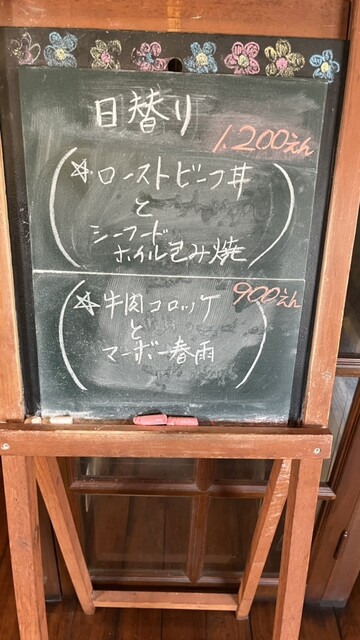 日替り
1,200えん
☆ローストビーフ丼
と
シーフード
ホイル包み焼
900えん
☆牛肉コロッケ
と
マーボー春雨